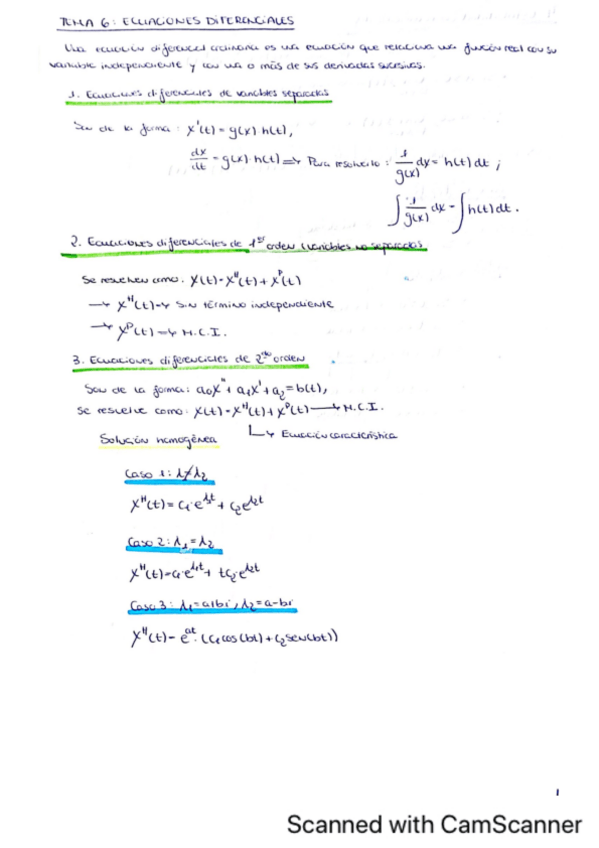 TEMA 6: ECUACIONES DIFERENCIALES
Una ecuación diferencial ordinaria es una ecuación que relaciona una función real con su
variable independiente y con una o más de sus derivadas sucesivas.
1. Ecuaciones diferenciales de variables separadas
Son de la forma: x'(t) = g(x) h(t),
dx/dt = g(x)·h(t) ⟹ Para resolverlo: 1/g(x) dx = h(t) dt ;
∫ 1/g(x) dx = ∫ h(t) dt.
2. Ecuaciones diferenciales de 1er orden (variables no separadas
Se resuelven como: x(t) = x^H(t) + x^P(t)
→ x^H(t) → Sin término independiente
→ x^P(t) → M.C.I.
3. Ecuaciones diferenciales de 2do orden
Son de la forma: a₀x'' + a₁x' + a₂ = b(t),
Se resuelve como: x(t) = x^H(t) + x^P(t) → M.C.I.
↳ Ecuación característica
Solución homogénea
Caso 1: λ₁≠λ₂
x^H(t) = c₁·e^λ₁t + c₂e^λ₂t
Caso 2: λ₁ = λ₂
x^H(t) = c₁·e^λ₁t + tc₂·e^λ₂t
Caso 3: λ₁ = a+bi, λ₂ = a-bi
x^H(t) = e^at·(c₁cos(bt) + c₂sen(bt))
1
Scanned with CamScanner